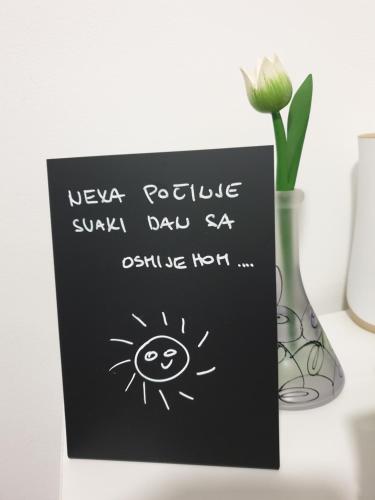 NEKA POČINJE
SVAKI DAN SA
OSMIJEHOM ....